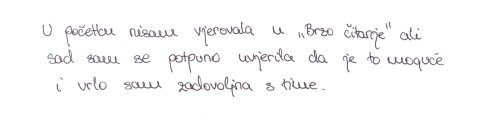 U početku nisam vjerovala u „Brzo čitanje" ali
sad sam se potpuno uvjerila da je to moguće
i vrlo sam zadovoljna s time.